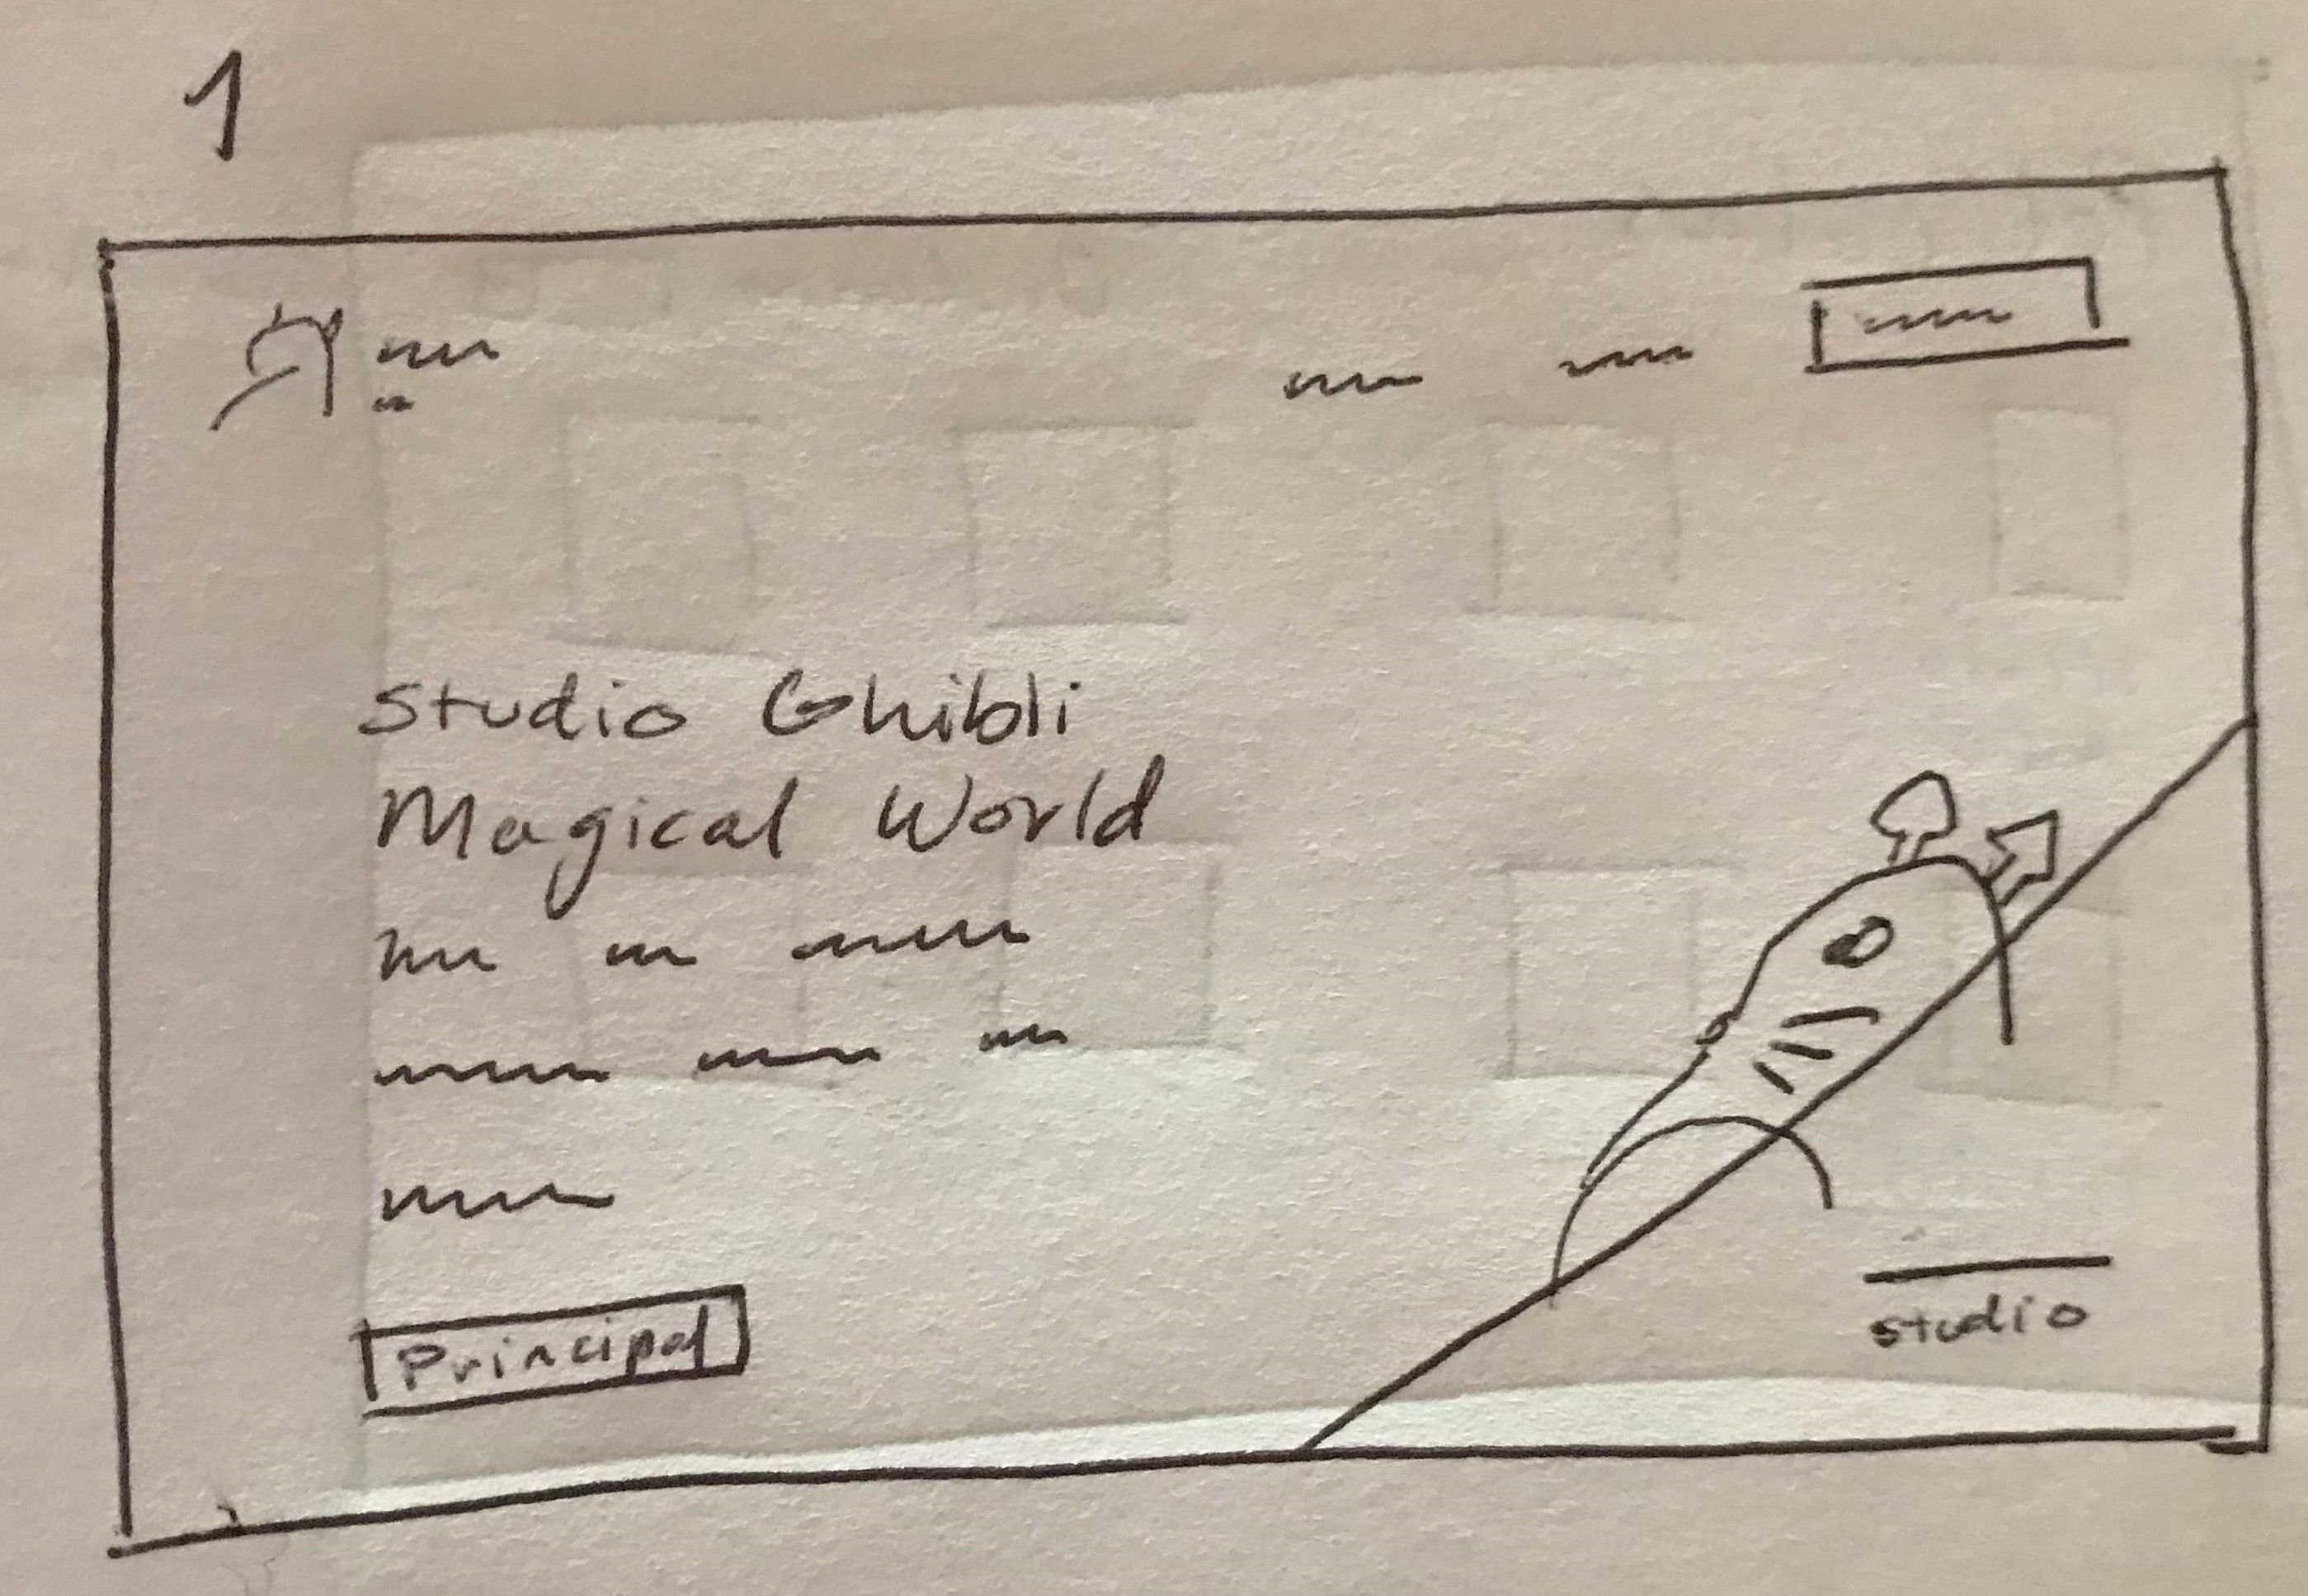 1
Studio Ghibli
Magical World
Principal
studio